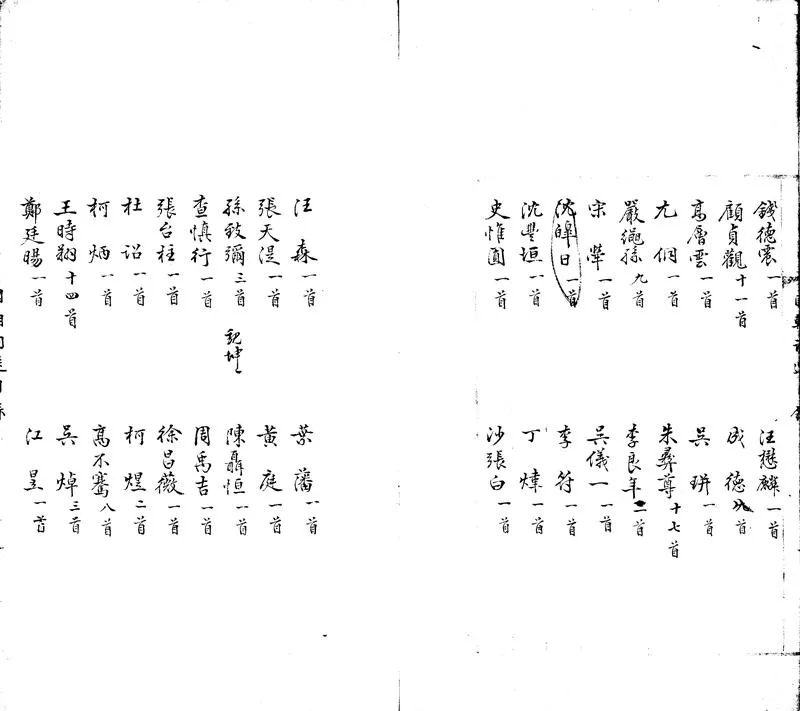 錢德震一首
汪懋麟一首
顧貞觀十一首
成德八首
高層雲一首
吳珊一首
尤侗一首
朱彝尊十七首
嚴繩孫九首
李良年二首
宋犖一首
吳儀一一首
沈皡日一首
李符一首
沈豐垣一首
丁煒一首
史惟圓一首
沙張白一首
汪森一首
葉藩一首
張天湜一首
黃庭一首
孫致彌三首
陳聶恒一首
查慎行一首
周禹吉一首
張台柱一首
徐昌薇一首
杜詔一首
柯煜二首
柯炳一首
高不騫八首
王時翔十四首
吳焯三首
鄭廷暘一首
江昱一首